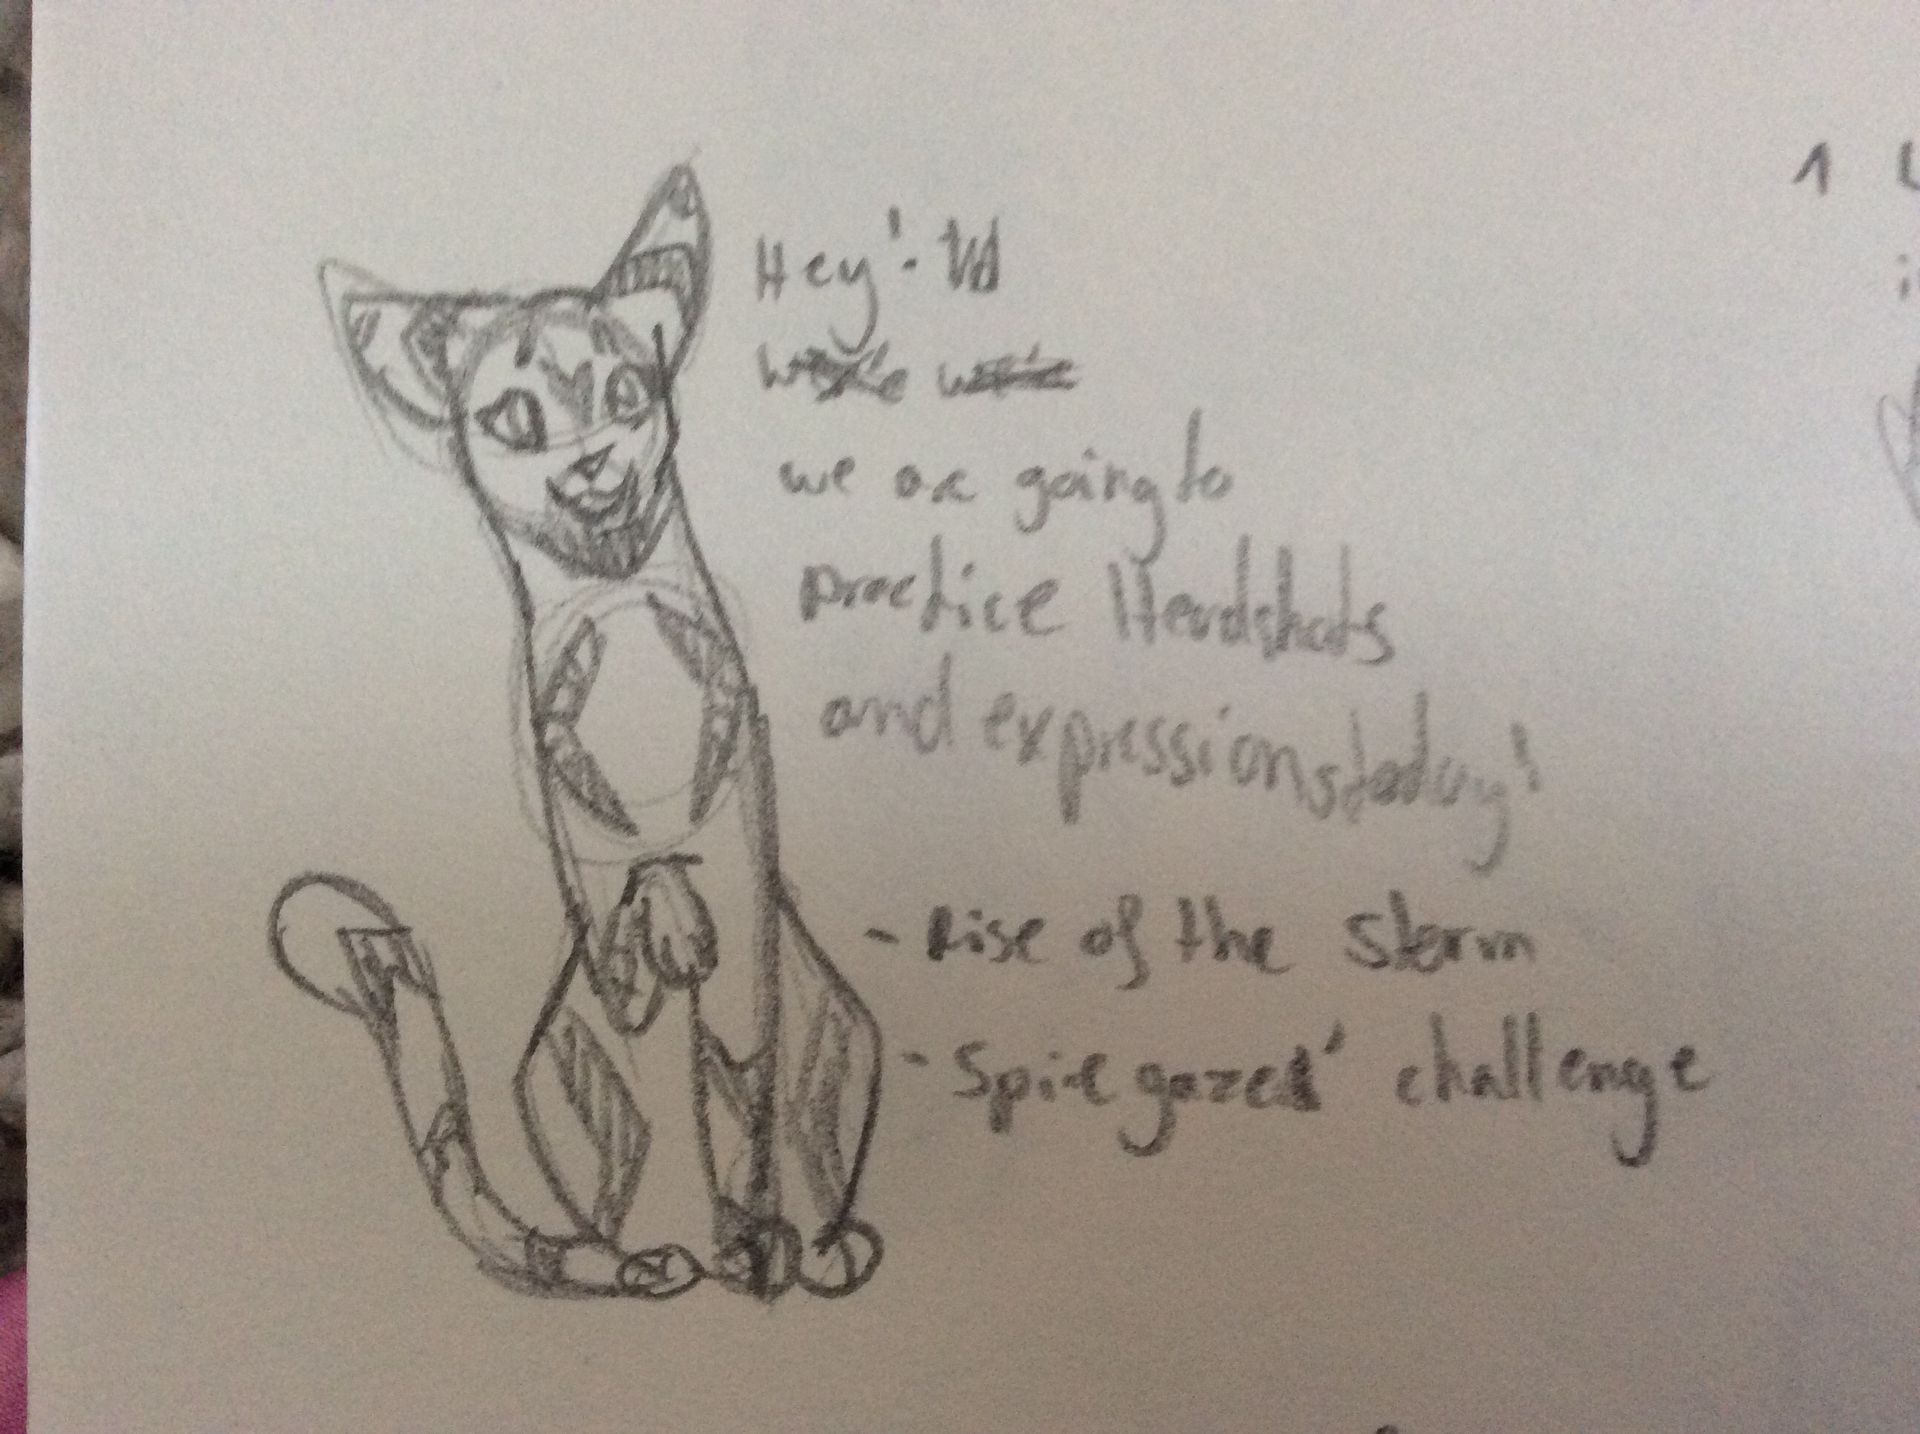 Hey!
we are going to
practice Headshots
and expressions today!
- Rise of the Storm
- Spiregazer' challenge
1